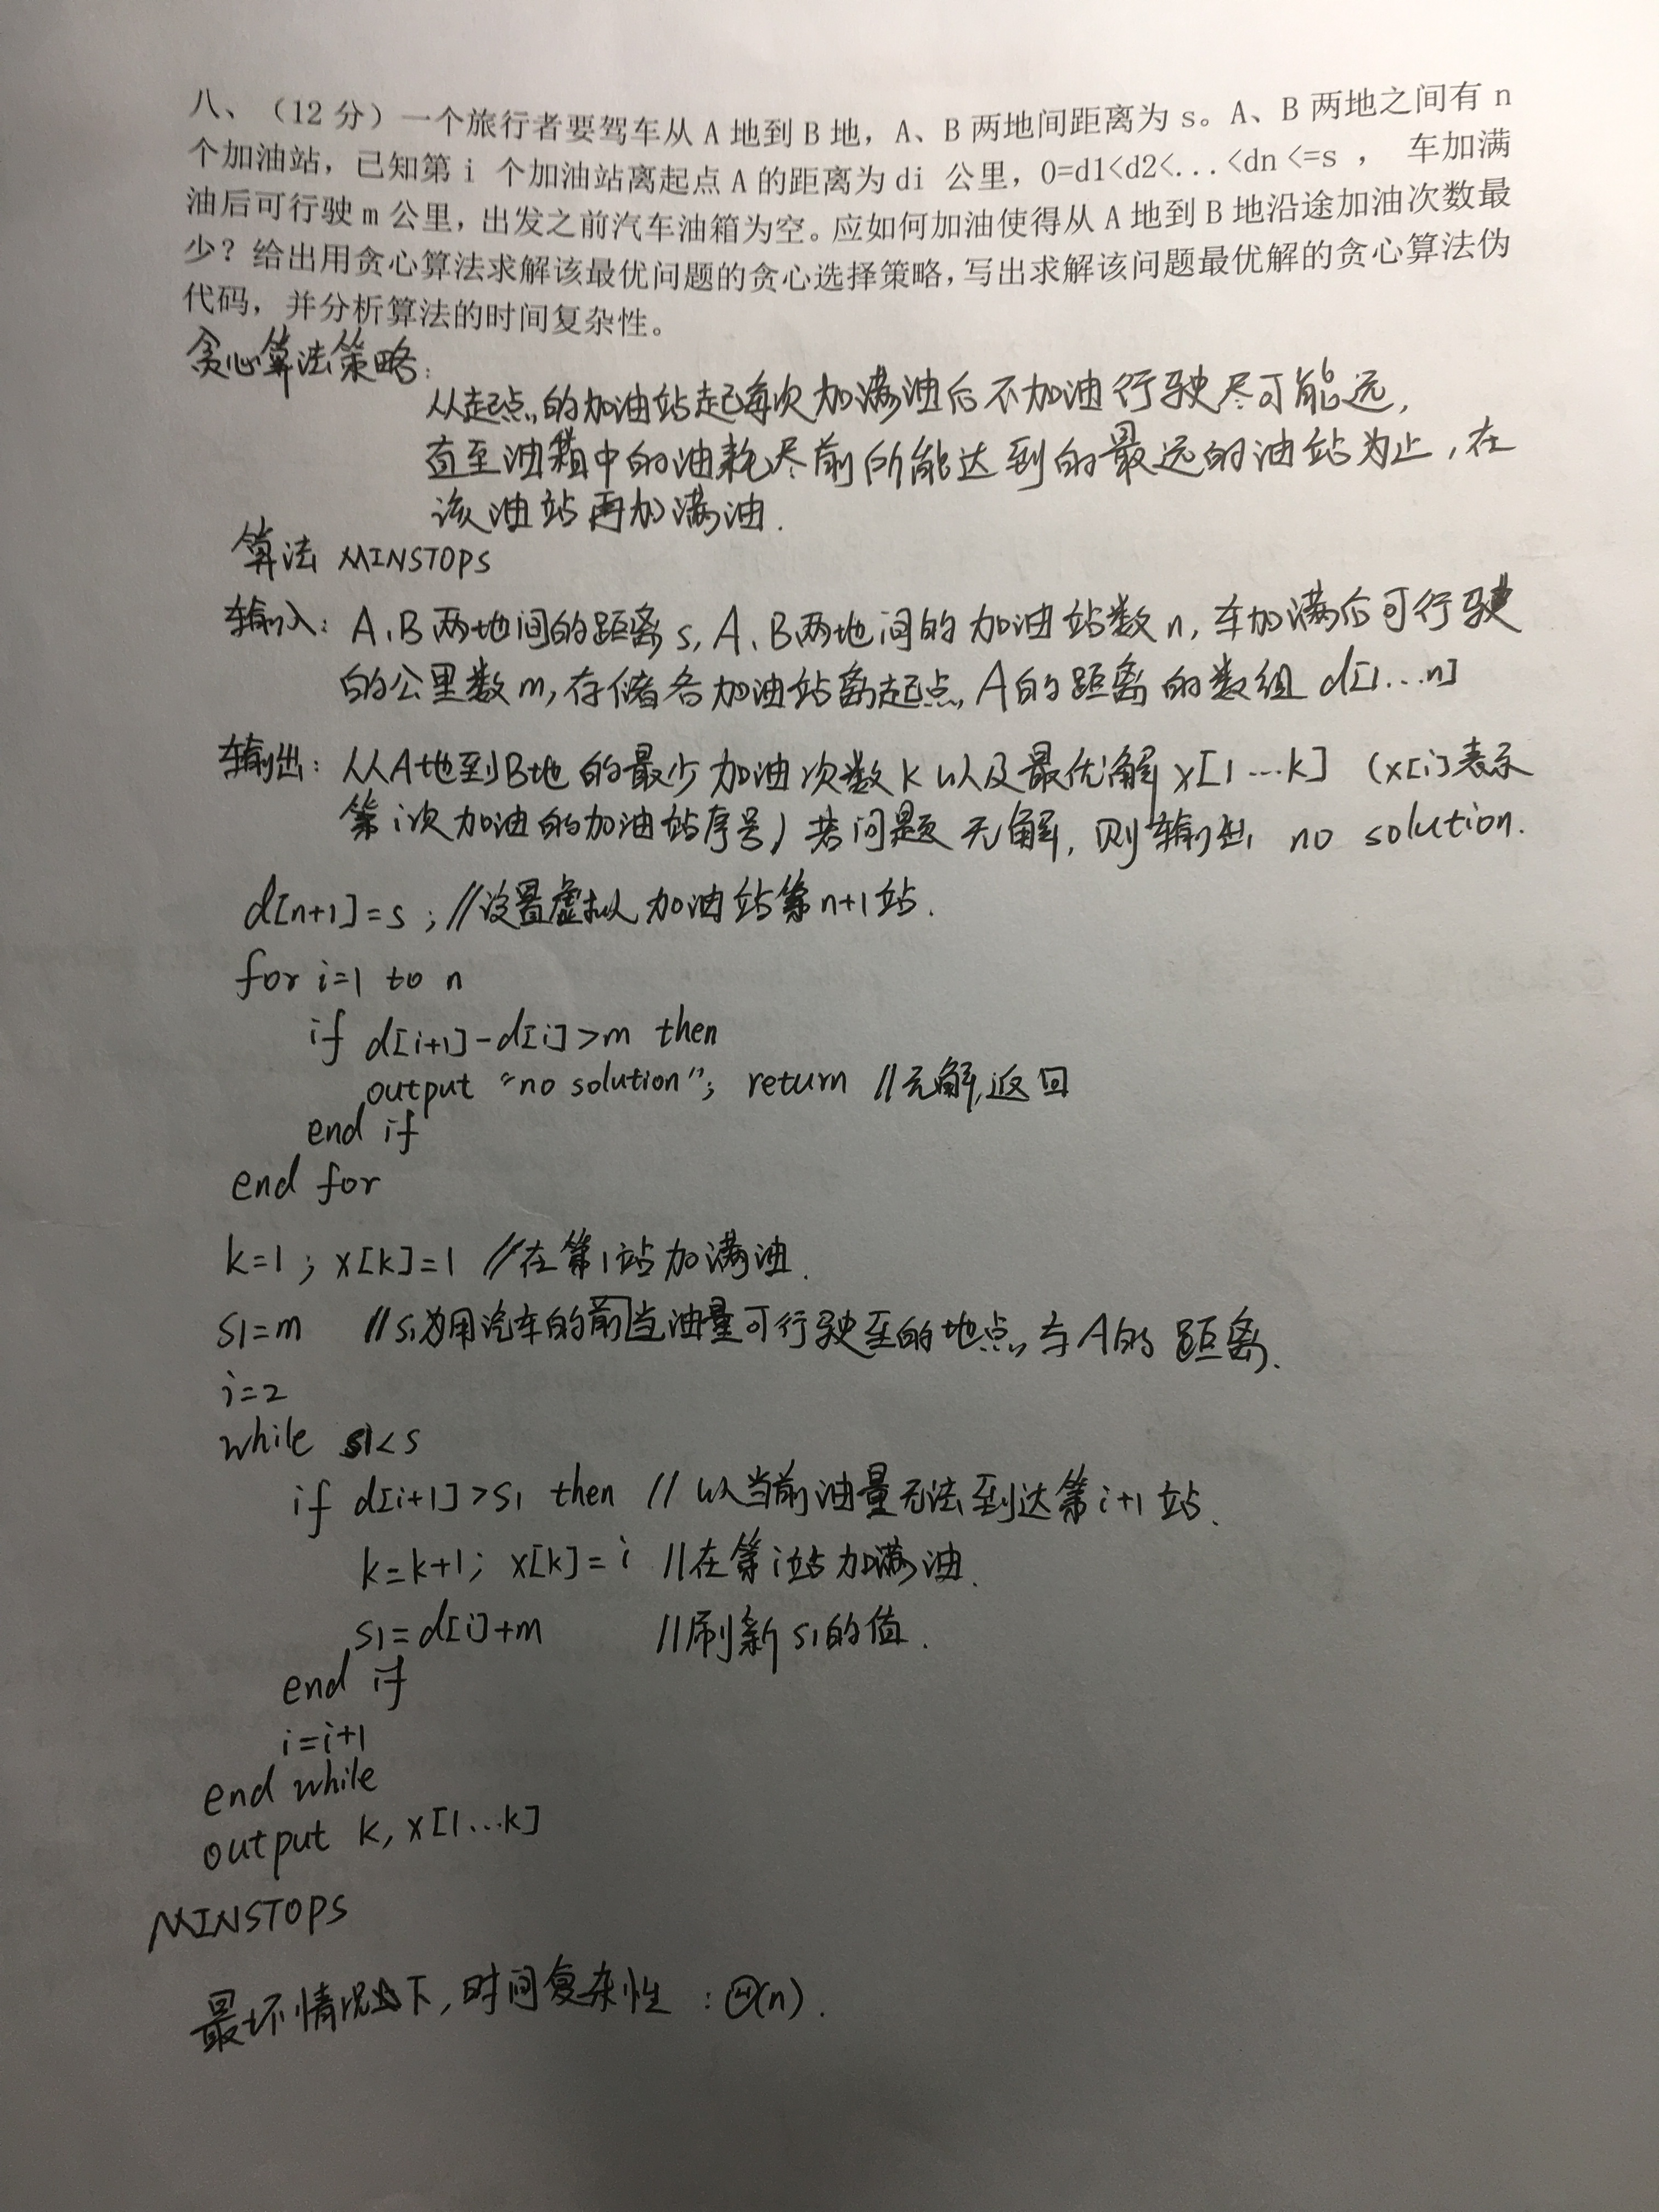 八、（12 分）一个旅行者要驾车从 A 地到 B 地，A、B 两地间距离为 s。A、B 两地之间有 n
个加油站，已知第 i 个加油站离起点 A 的距离为 di 公里，0=d1<d2<...<dn<=s ， 车加满
油后可行驶 m 公里，出发之前汽车油箱为空。应如何加油使得从 A 地到 B 地沿途加油次数最
少？给出用贪心算法求解该最优问题的贪心选择策略，写出求解该问题最优解的贪心算法伪
代码，并分析算法的时间复杂性。
贪心算法策略：
从起点的加油站起每次加满油后不加油行驶尽可能远，
直至油箱中的油耗尽前所能达到的最远的油站为止，在
该油站再加满油.
算法 MINSTOPS
输入：A、B两地间的距离s, A、B两地间的加油站数n, 车加满后可行驶
的公里数m, 存储各加油站离起点A的距离的数组 d[1...n]
输出：从A地到B地的最少加油次数k以及最优解x[1...k]（x[i]表示
第i次加油的加油站序号）若问题无解, 则输出 no solution.
d[n+1]=s ; //设置虚拟加油站第n+1站.
for i=1 to n
if d[i+1]-d[i]>m then
output "no solution"; return //无解,返回
end if
end for
k=1 ; x[k]=1 //在第1站加满油.
s1=m //s1为用汽车的前当油量可行驶至的地点与A的距离.
i=2
while s1<s
if d[i+1]>s1 then // 以当前油量无法到达第i+1站.
k=k+1; x[k]=i //在第i站加满油.
s1=d[i]+m //刷新s1的值.
end if
i=i+1
end while
output k, x[1...k]
MINSTOPS
最坏情况下, 时间复杂性：Θ(n).